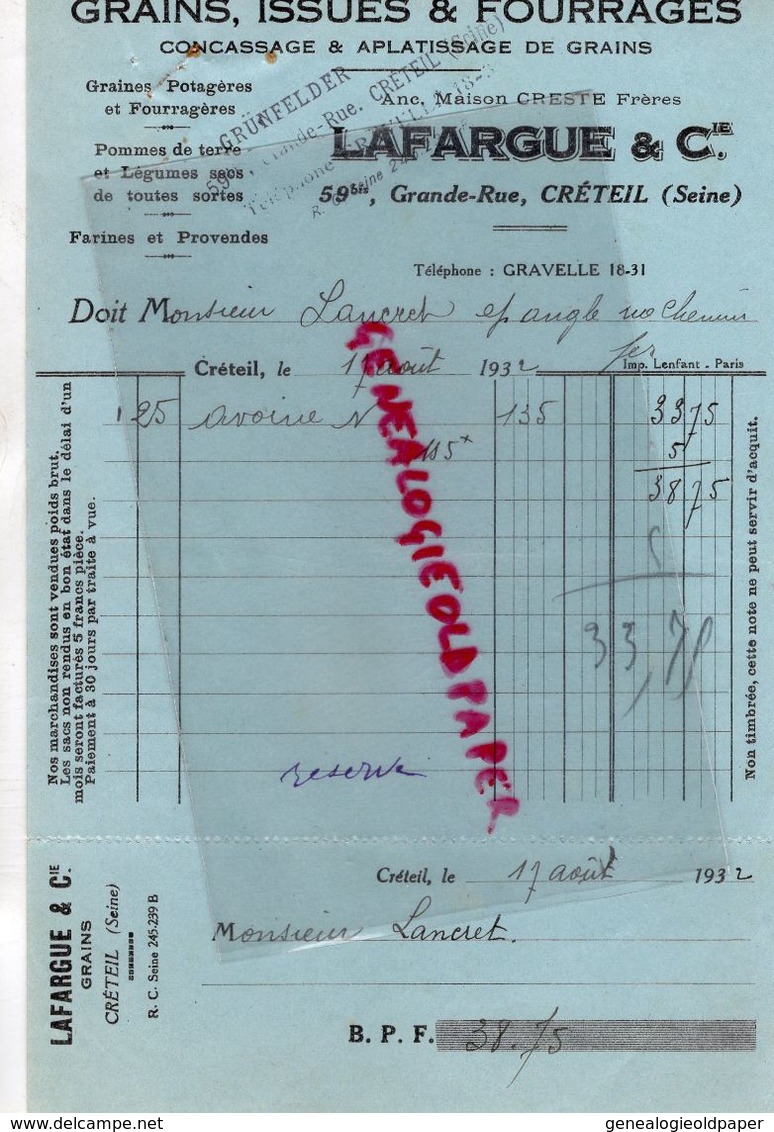 GRAINS, ISSUES & FOURRAGES
CONCASSAGE & APLATISSAGE DE GRAINS
Graines Potagères
et Fourragères
Pommes de terre
et Légumes secs
de toutes sortes
Farines et Provendes
GRÜNFELDER
59, Grande-Rue. CRÉTEIL (Seine)
Téléphone GRAVELLE 18-3
R. C. Seine
Anc. Maison CRESTE Frères
LAFARGUE & CIE.
59bis, Grande-Rue, CRÉTEIL (Seine)
Téléphone : GRAVELLE 18-31
Doit Monsieur Lancret
chemin
fer
Créteil, le 17 août 1932
Imp. Lenfant - Paris
25 avoine N 135 33 75
5
38 75
5
33,75
reserve
Nos marchandises sont vendues poids brut.
Les sacs non rendus en bon état dans le délai d'un
mois seront facturés 5 francs pièce.
Paiement à 30 jours par traite à vue.
Non timbrée, cette note ne peut servir d'acquit.
GENEALOGIEOLDPAPER
LAFARGUE & CIE.
GRAINS
CRÉTEIL (Seine)
R. C. Seine 245.239 B
Créteil, le 17 août 1932
Monsieur Lancret.
B. P. F. 38.75
www.delcampe.net
genealogieoldpaper